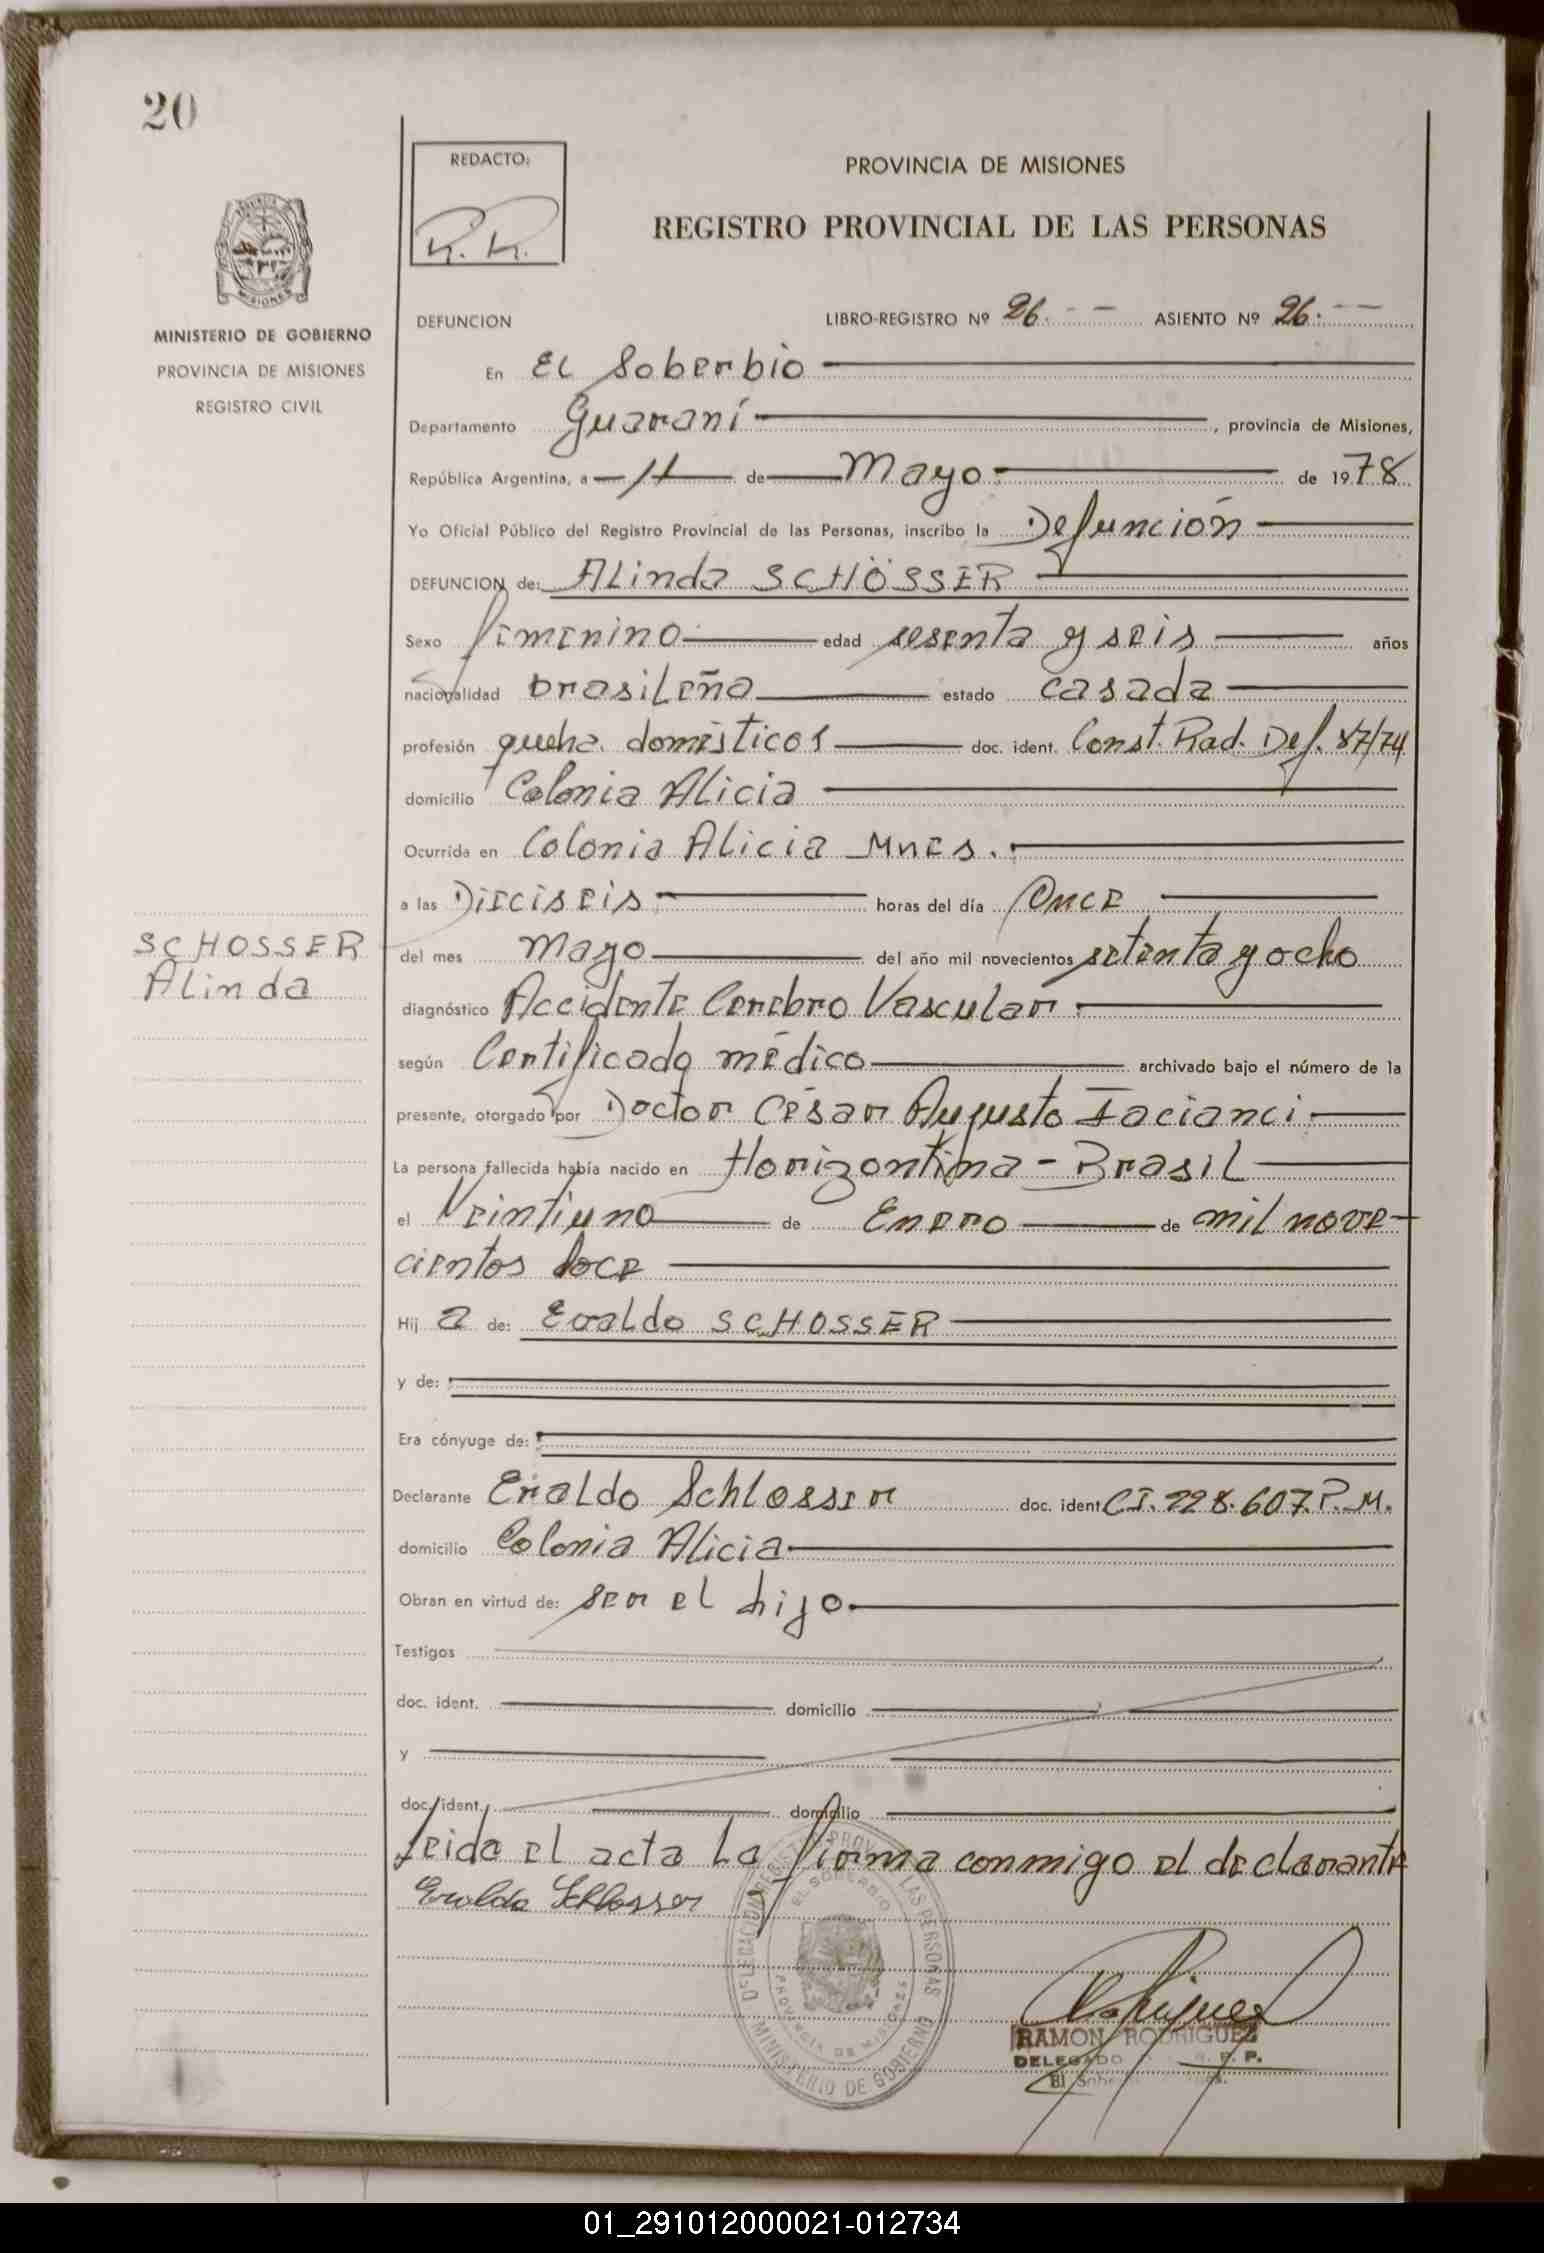 20
REDACTO:
R. R.
PROVINCIA DE MISIONES
REGISTRO PROVINCIAL DE LAS PERSONAS
MISIONES
MINISTERIO DE GOBIERNO
PROVINCIA DE MISIONES
REGISTRO CIVIL
DEFUNCION LIBRO-REGISTRO Nº 26. ASIENTO Nº 26.
En El Soberbio
Departamento Guaraní , provincia de Misiones,
República Argentina, a de Mayo. de 1978
Yo Oficial Público del Registro Provincial de las Personas, inscribo la Defunción
DEFUNCION de: Alinda SCHÖSSER
Sexo femenino edad sesenta y seis años
nacionalidad brasileña estado casada
profesión queha. domésticos doc. ident. Const. Rad. Def. 87/74
domicilio Colonia Alicia
Ocurrida en Colonia Alicia Mnes.
a las Dieciseis horas del día Once
del mes Mayo del año mil novecientos setenta y ocho
SCHOSSER
Alinda
diagnóstico Accidente Cerebro Vascular.
según Certificado médico archivado bajo el número de la
presente, otorgado por Doctor César Augusto Facianci.
La persona fallecida había nacido en Horizontina - Brasil
el Veintiuno de Enero de mil nove-
cientos doce
Hij a de: Evaldo SCHOSSER
y de:
Era cónyuge de:
Declarante Eraldo Schlosser doc. ident C.I. 228.607.P.M.
domicilio Colonia Alicia
Obran en virtud de: ser el hijo
Testigos
doc. ident. domicilio
y
doc. ident. domicilio
Leida el acta la firma conmigo el declarante
Eraldo Schlosser
DELEGACION REGISTRO PROV. LAS PERSONAS
EL SOBERBIO
PROVINCIA DE MISIONES
MINISTERIO DE GOBIERNO
Rodriguez
RAMON RODRIGUEZ
DELEGADO R. P. P.
El
01_291012000021-012734